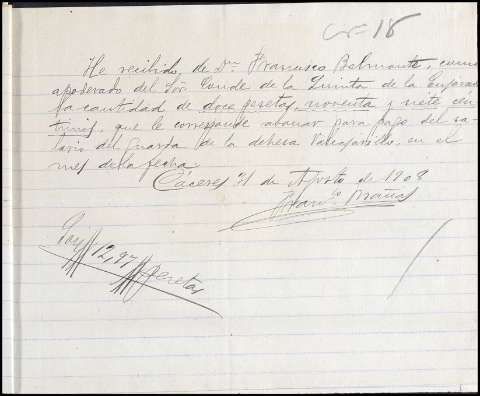 18
He recibido, de Dn Francisco Belmonte, como
apoderado del Sor Conde de la Quinta de la Enjarada
la cantidad de doce pesetas, noventa y siete cen
timos, que le corresponde abonar para pago del sa-
lario del guarda de la dehesa en el
mes de la fecha.
Cáceres 31 de Agosto de 1908
Son # 12,97 # pesetas